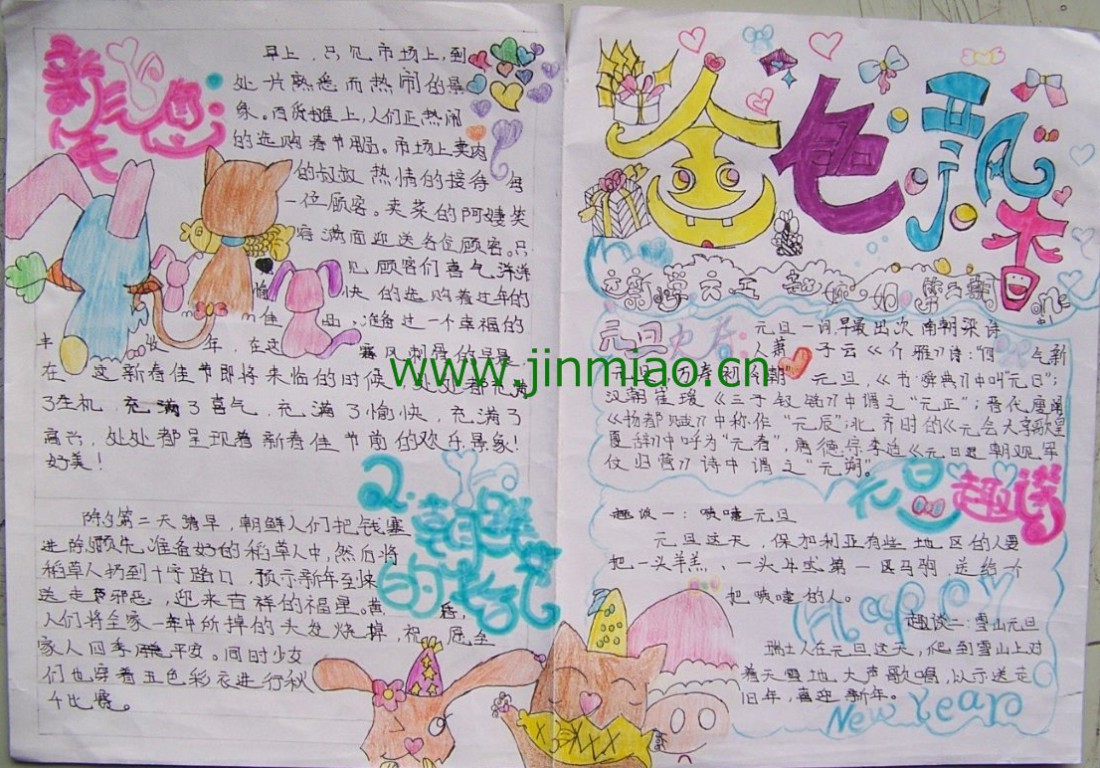 金色飘香
早上，只见市场上，到
处一片熟悉而热闹的景
象。百货摊上，人们正热闹
的选购春节用品。市场上卖肉
的叔叔热情的接待每
一位顾客。卖菜的阿姨笑
容满面迎送各位顾客。只
见顾客们喜气洋洋
愉快的选购着过年的
佳品，准备过一个幸福的
年，在这寒风刺骨的早晨
在这新春佳节即将来临的时候
了生机，充满了喜气，充满了愉快，充满了
高兴，处处都呈现着新春佳节前的欢乐景象！
好美！
2.朝鲜
的
除夕第二天清早，朝鲜人们把钱塞
进除预先准备好的稻草人中，然后将
稻草人扔到十字路口，预示新年至来
送走邪恶，迎来吉祥的福星。黄昏，
人们将全家一年中所掉的头发烧掉，祝愿全
家人四季平安。同时少女
们也穿着五色彩衣进行秋
千比赛。
元旦
元旦一词，早最出次南朝梁诗
人萧子云《介雅》诗：
元旦，《书·舜典》中叫"元日"；
汉朝崔瑗《三子钗铭》中谓之"元正"；晋代庾阐
《扬都赋》中称作"元辰"；北齐时的《元会大享歌皇
夏辞》中呼为"元春"，唐德宗李适《元日退朝观军
仗归营》诗中谓之"元朔"。
元旦趣谈
趣谈一：喷嚏元旦
元旦这天，保加利亚有些地区的人要
把一头羊羔、一头牛或第一匹马驹送给
把喷嚏的人。
HAPPY
趣谈二：雪山元旦
瑞士人在元旦这天，爬到雪山上对
着天雪地大声歌唱，以示送走
旧年，喜迎新年。
New Year
www.jinmiao.cn